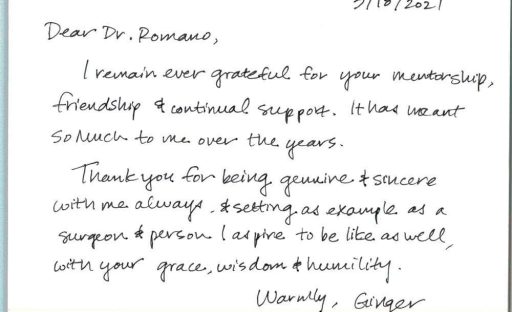 3/18/2021
Dear Dr. Romano,
I remain ever grateful for your mentorship,
friendship & continual support. It has meant
so much to me over the years.
Thank you for being genuine & sincere
with me always, & setting as example as a
surgeon & person I aspire to be like as well,
with your grace, wisdom & humility.
Warmly, Ginger